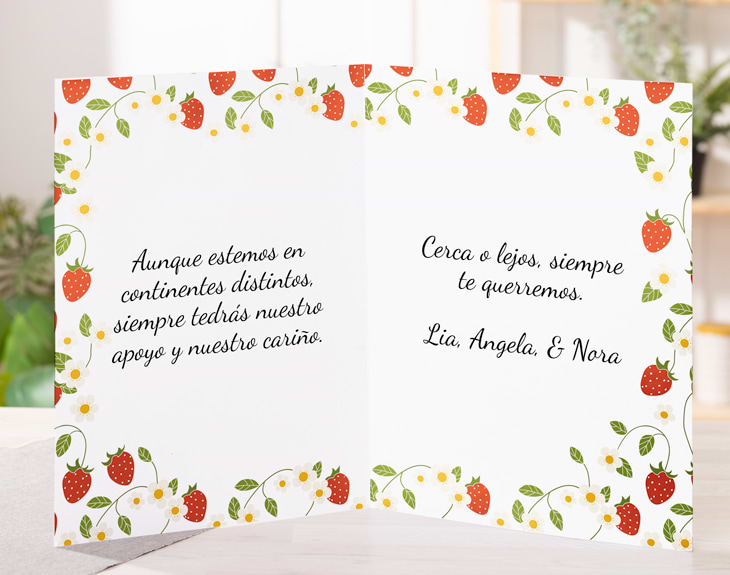 Aunque estemos en
continentes distintos,
siempre tedrás nuestro
apoyo y nuestro cariño.
Cerca o lejos, siempre
te querremos.
Lia, Angela, & Nora